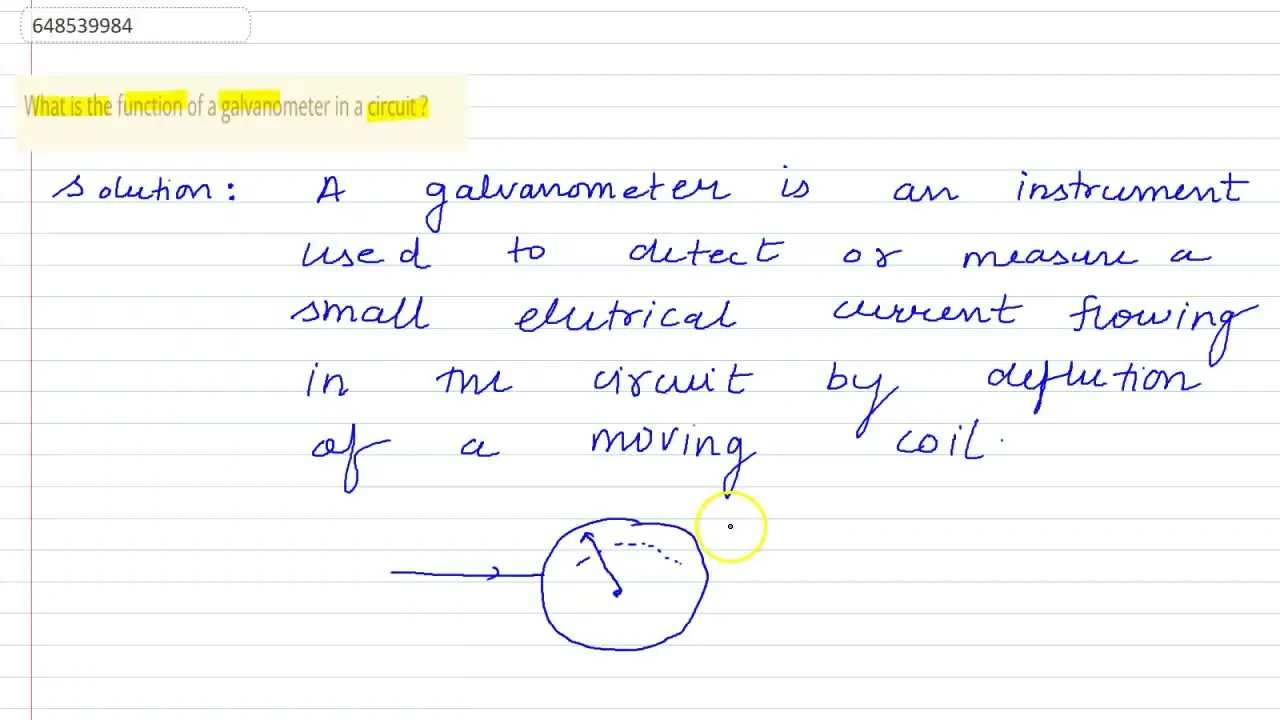 648539984
What is the function of a galvanometer in a circuit ?
Solution : A galvanometer is an instrument
used to detect or measure a
small electrical current flowing
in the circuit by deflection
of a moving coil.